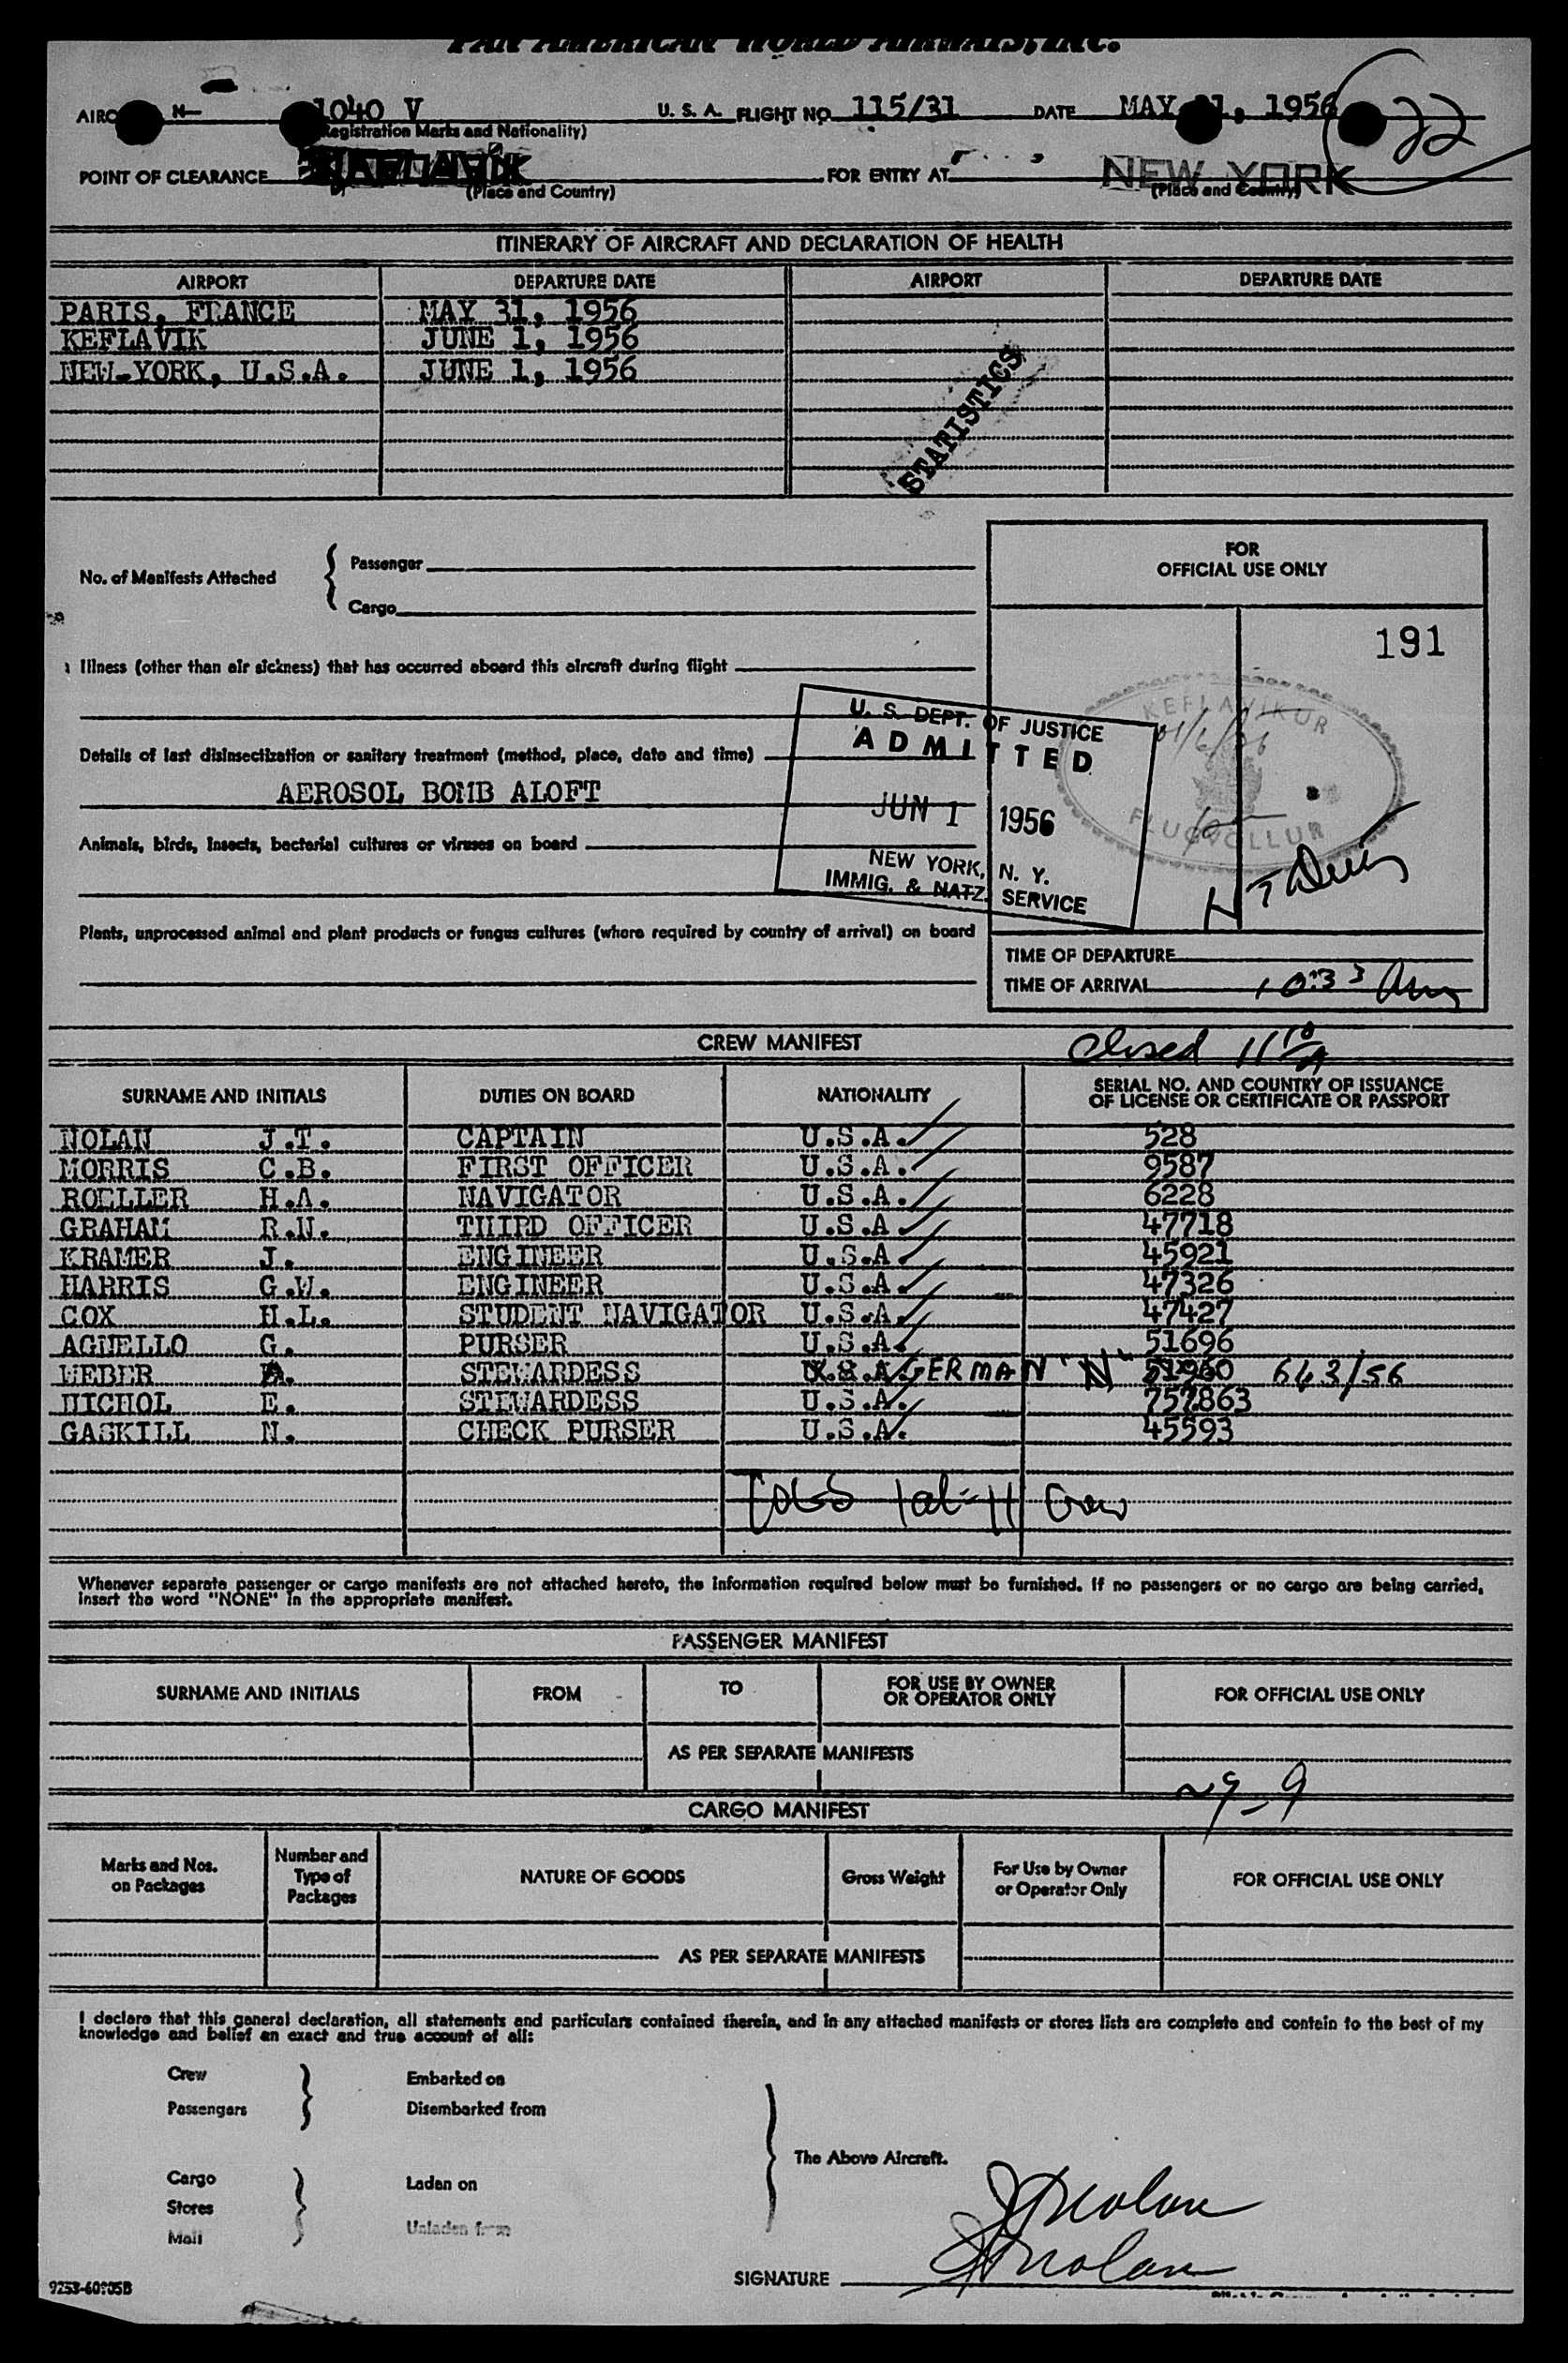 PAN AMERICAN WORLD AIRWAYS, INC.
N- 1040 V U. S. A. FLIGHT NO. 115/31 DATE MAY 31, 1956 22
(Registration Marks and Nationality)
POINT OF CLEARANCE KEFLAVIK FOR ENTRY AT NEW YORK
(Place and Country) (Place and Country)
ITINERARY OF AIRCRAFT AND DECLARATION OF HEALTH
AIRPORT DEPARTURE DATE AIRPORT DEPARTURE DATE
PARIS, FRANCE MAY 31, 1956
KEFLAVIK JUNE 1, 1956
NEW YORK, U.S.A. JUNE 1, 1956
STATISTICS
FOR
OFFICIAL USE ONLY
No. of Manifests Attached { Passenger
Cargo
191
Illness (other than air sickness) that has occurred aboard this aircraft during flight
KEFLAVIKUR
01/6/56
FLUGVÖLLUR
U. S. DEPT. OF JUSTICE
ADMITTED
JUN 1 1956
NEW YORK, N. Y.
IMMIG. & NATZ. SERVICE
Details of last disinsectization or sanitary treatment (method, place, date and time)
AEROSOL BOMB ALOFT
Animals, birds, insects, bacterial cultures or viruses on board
Plants, unprocessed animal and plant products or fungus cultures (where required by country of arrival) on board
TIME OF DEPARTURE
TIME OF ARRIVAL 10:33 Am
CREW MANIFEST closed 11 10/A
SURNAME AND INITIALS DUTIES ON BOARD NATIONALITY SERIAL NO. AND COUNTRY OF ISSUANCE
OF LICENSE OR CERTIFICATE OR PASSPORT
NOLAN J.T. CAPTAIN U.S.A. 528
MORRIS C.B. FIRST OFFICER U.S.A. 9587
ROELLER H.A. NAVIGATOR U.S.A. 6228
GRAHAM R.N. THIRD OFFICER U.S.A. 47718
KRAMER J. ENGINEER U.S.A. 45921
HARRIS G.W. ENGINEER U.S.A. 47326
COX H.L. STUDENT NAVIGATOR U.S.A. 47427
AGNELLO G. PURSER U.S.A. 51696
WEBER A. STEWARDESS U.S.A. GERMAN "N" 51960 643/56
NICHOL E. STEWARDESS U.S.A. 757863
GASKILL N. CHECK PURSER U.S.A. 45593
11 Crew
Whenever separate passenger or cargo manifests are not attached hereto, the information required below must be furnished. If no passengers or no cargo are being carried,
insert the word "NONE" in the appropriate manifest.
PASSENGER MANIFEST
SURNAME AND INITIALS FROM TO FOR USE BY OWNER
OR OPERATOR ONLY FOR OFFICIAL USE ONLY
AS PER SEPARATE MANIFESTS
CARGO MANIFEST
Marks and Nos.
on Packages Number and
Type of
Packages NATURE OF GOODS Gross Weight For Use by Owner
or Operator Only FOR OFFICIAL USE ONLY
AS PER SEPARATE MANIFESTS
I declare that this general declaration, all statements and particulars contained therein, and in any attached manifests or stores lists are complete and contain to the best of my
knowledge and belief an exact and true account of all:
Crew
Passengers
Embarked on
Disembarked from
The Above Aircraft.
Cargo
Stores
Mail
Laden on
Unladen from
J T Nolan
SIGNATURE J T Nolan
9253-60705B